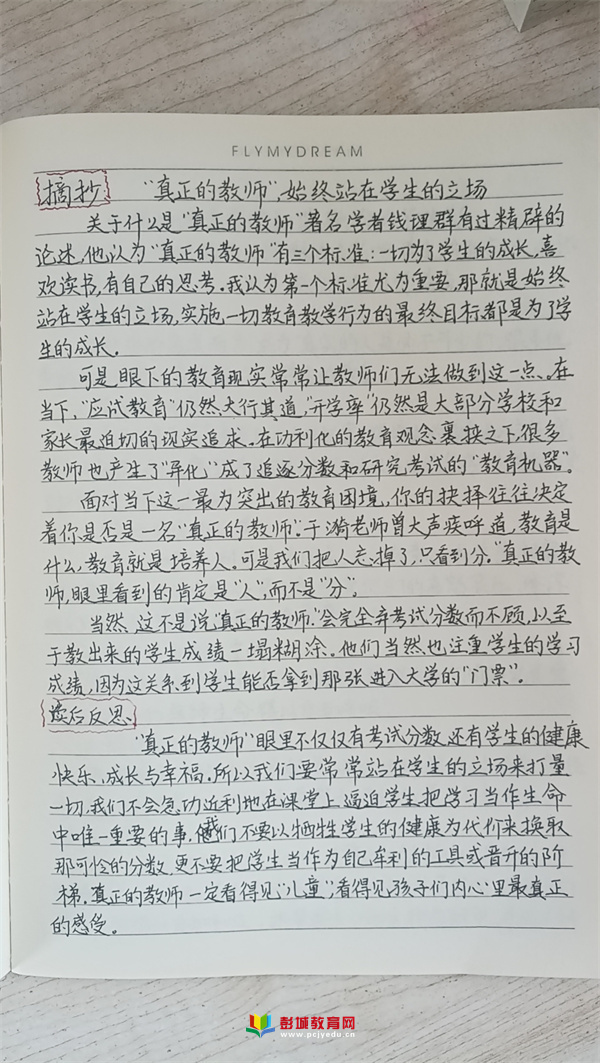 FLYMYDREAM
摘抄 “真正的教师”,始终站在学生的立场
关于什么是“真正的教师”著名学者钱理群有过精辟的
论述,他认为“真正的教师”有三个标准:一切为了学生的成长,喜
欢读书,有自己的思考。我认为第一个标准尤为重要,那就是始终
站在学生的立场,实施一切教育教学行为的最终目标都是为了学
生的成长。
可是眼下的教育现实常常让教师们无法做到这一点。在
当下,“应试教育”仍然大行其道,“升学率”仍然是大部分学校和
家长最迫切的现实追求。在功利化的教育观念裹挟之下,很多
教师也产生了“异化”成了追逐分数和研究考试的“教育机器”。
面对当下这一最为突出的教育困境,你的抉择往往决定
着你是否是一名“真正的教师”.于漪老师曾大声疾呼道,教育是
什么,教育就是培养人。可是我们把人忘掉了,只看到分。“真正的教
师,眼里看到的肯定是“人”,而不是“分”。
当然,这不是说“真正的教师.”会完全弃考试分数而不顾,以至
于教出来的学生成绩一塌糊涂。他们当然也注重学生的学习
成绩,因为这关系到学生能否拿到那张进入大学的“门票”。
读后反思
“真正的教师”眼里不仅仅有考试分数,还有学生的健康
快乐、成长与幸福,所以我们要常常站在学生的立场来打量
一切,我们不会急功近利地在课堂上逼迫学生把学习当作生命
中唯一重要的事,我们不要以牺牲学生的健康为代价来换取
那可怜的分数,更不要把学生当作为自己牟利的工具或晋升的阶
梯,真正的教师一定看得见“儿童”,看得见孩子们内心里最真正
的感受。
彭城教育网
www.pcjyedu.cn